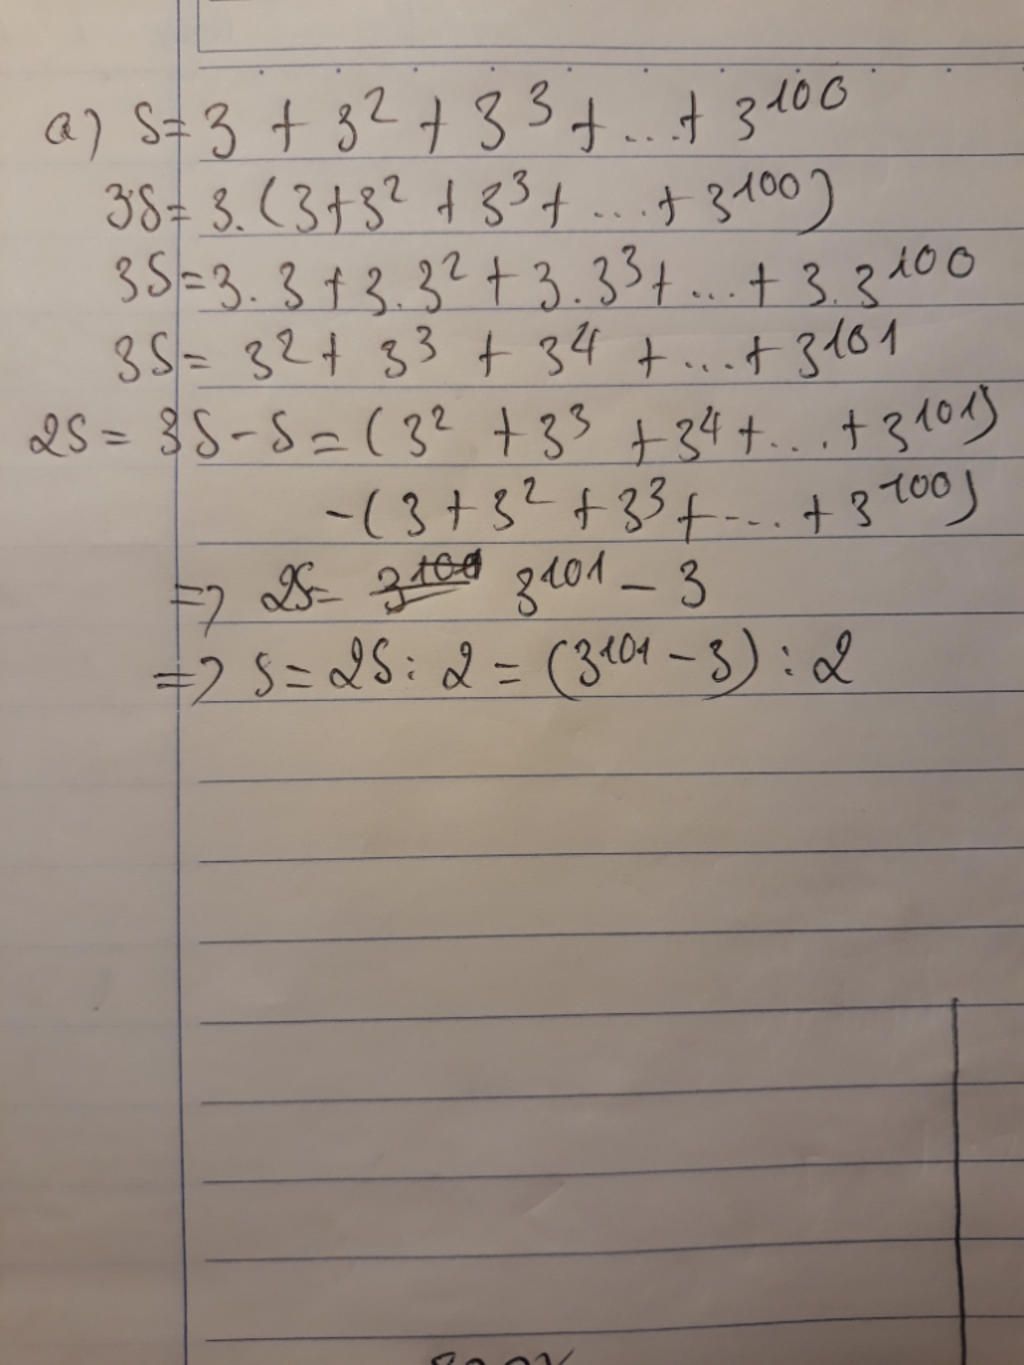 a) S = 3 + 3² + 3³ + ... + 3¹⁰⁰
3S = 3.(3 + 3² + 3³ + ... + 3¹⁰⁰)
3S = 3.3 + 3.3² + 3.3³ + ... + 3.3¹⁰⁰
3S = 3² + 3³ + 3⁴ + ... + 3¹⁰¹
2S = 3S - S = (3² + 3³ + 3⁴ + ... + 3¹⁰¹)
-(3 + 3² + 3³ + ... + 3¹⁰⁰)
=> 2S = 3¹⁰¹ - 3
=> S = 2S : 2 = (3¹⁰¹ - 3) : 2